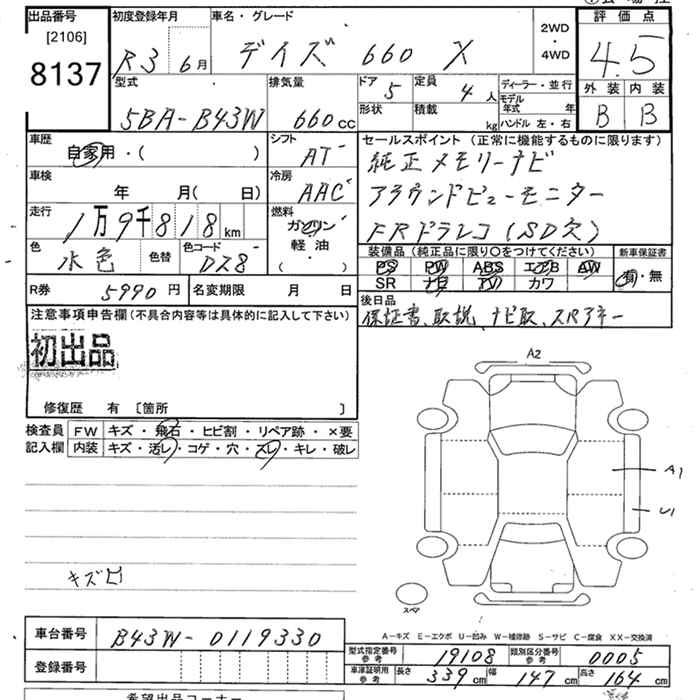 出品番号 初度登録年月 車名・グレード 2WD 評価点
[2106] R3 6月 デイズ 660 X ・ 4.5
8137 4WD
型式 排気量 ドア 5 定員 4人 ディーラー・並行 外装 内装
5BA-B43W 660cc 形状 積載 kg モデル年式 年 B B
ハンドル 左・右
車歴 シフト セールスポイント(正常に機能するものに限ります)
自家用・( ) AT 純正メモリーナビ
車検 年 月( 日) 冷房 AAC アラウンドビューモニター
走行 1万9千818km 燃料 ガソリン FRドラレコ(SD欠)
軽油・
( )
色 水色 色替 色コード DZ8 装備品(純正品に限り〇をつけてください) 新車保証書
PS PW ABS エアB AW 有・無
SR ナビ TV カワ
R券 5990円 名変期限 月 日 後日品
注意事項申告欄(不具合内容等は具体的に記入して下さい) 保証書、取説、ナビ取、スペアキー
初出品
修復歴 有 [箇所 ]
検査員 FW キズ・飛石・ヒビ割・リペア跡・×要
記入欄 内装 キズ・汚レ・コゲ・穴・スレ・キレ・破レ
A2
A1
U1
キズ
スペア
A-キズ E-エクボ U-凹み W-補修跡 S-サビ C-腐食 XX-交換済
車台番号 B43W-0119330 型式指定番号 参考 19108 類別区分番号 参考 0005
登録番号 車庫証明用 参考 長さ 339cm 幅 147cm 高さ 164cm
希望出品コーナー